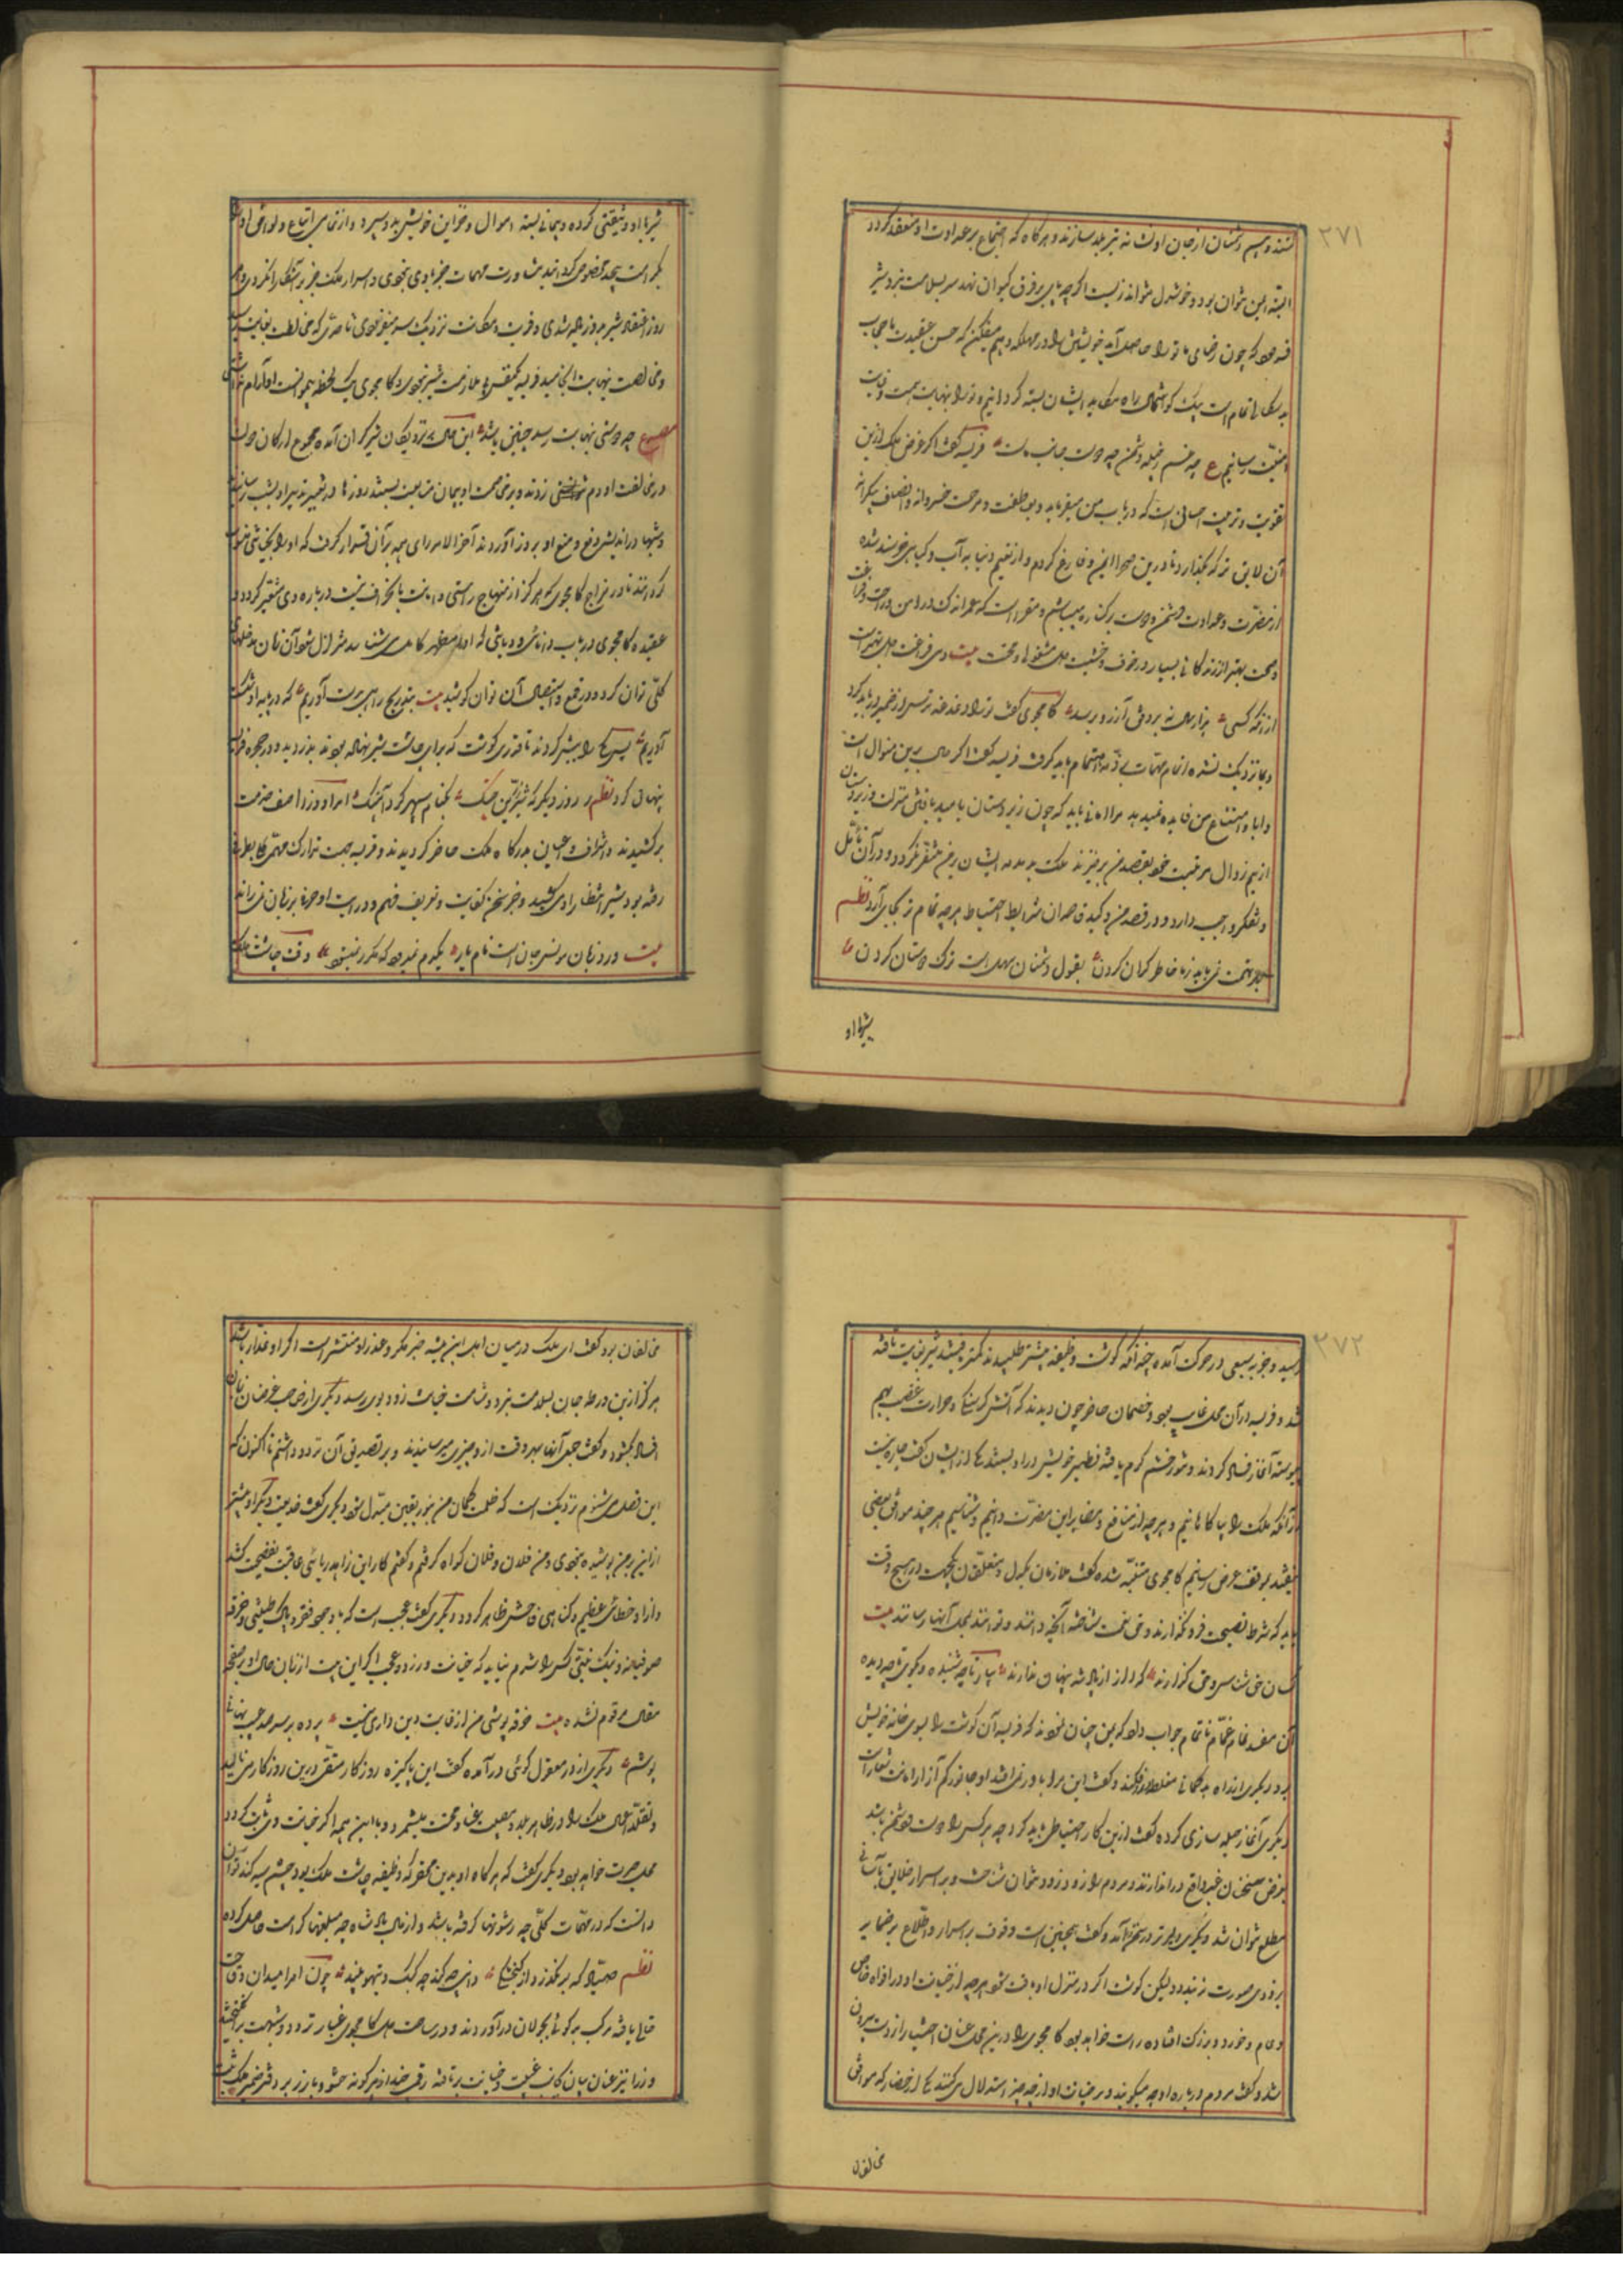 ۲۷۱
شنند و بیم دشنان از جان او نشانه تیر بلا سازند و هرگاه که اجتماع بر عداوت او منعقد گردد
البته ایمن نتوان بود و خوشدل نتواند زیست اگرچه پای بر فرق کیوان نهد سر بسلامت نبرد شیر
فرمود که چون رضای ما ترا حاصل آید خویشتن را در مهلکه وهم میفکن که حسن عقیدت ما حجاب
به مکانها تمام است بیک گوشمال راه مکاید ایشان بسته گردانیم و ترا بنهایت همت و غایت
امنیت رسانیم ع چه غم ز حیله دشمن چو دوست جانب ماست فریسه گفت اگر غرض ملک ازین
تقویت و تربیت احسانی است که در باب من میفرماید و بعاطفت و مرحمت خسروانه و انصاف بیکرانه
آن لایق تر که بگذارد تا درین صحرا ایمن و فارغ گردم و از نعیم دنیا به آب و گیاهی خرسند شده
از مضرت و عداوت دشمن و دوست برکناره میباشم و مقرر است که عمر اندک در امن و راحت و فراغت
و صحت بهتر از زندگانی بسیار در خوف و خشیت دل مشغولی و محنت بیت دمی فراغت دل بهتر است
از آنکه کسی هزار سال به بر وفق آرزو برسد کامجوی گفت ترا دغدغه ترس از ضمیر دور باید کرد
و بما نزدیک شده انجام مهمات به ذمه اهتمام باید گرفت فریسه گفت اگر حال برین منوال است
و ابا و امتناع من فایده نمیدهد مرا امانی باید که چون زیردستان بامید یافتن منزلت و زبردستان
از بیم زوال مرتبت خود بقصد من برخیزند ملک بدمدمه ایشان بر من متغیر نگردد و در آن تأمل
و تفکر واجب دارد و در قصه من و کید قاصدان شرایط احتیاط هر چه تمام تر بجای آرد نظم
بهر تهمت نمی باید ز ما خاطر گران کردن بقول دشمنان سهل است ترک دوستان کردن
شیر با او
شیر با او وثیقتی کرده و پیمانی بسته اموال و خزاین خویش بدو سپرد و از تمامی اتباع و لواحق او را
بکرامت بیحد مخصوص گردانید مشاورت مهمات جز با وی نبودی و اسرار ملک جز بر او آشکارا نکردی و هر
روز اعتقاد شیر بدو زیاده شدی و قربت و مکانت نزدیک سریر میفزودی تا حدی که مخالطت بغایت رسید
و مخالصت بنهایت انجامید فریسه یکنفس بی ملازمت شیر نبودی و کامجوی یک لحظه بیموانست او آرام نداشتی
مصرع چو دوستی بنهایت رسد چنین باشد این حال بر نزدیکان شیر گران آمده مجموع ارکان دولت
در مخالفت او دم موافقت زدند و بر مخاصمت او پیمان متابعت بستند روزها در تدبیر او بشب رسانیدند
و شبها در اندیشه دفع و منع او بروز آوردند آخر الامر رای همه بر آن قرار گرفت که او را بخیانتی منسوب
گردانند تا در مزاج کامجوی که هرگز از منهاج راستی و امانت بانحراف نیست درباره وی متغیر گردد و
عقیده کامجوی در باب دانائی و دیانتی که او را مظهر کمال می شناسد متزلزل شود آن زمان بدخلهای
کلی توان کرد و در قلع و استیصال آن توان کوشید بیت بتدریج راهی بدست آوریم که در پایه او شکست
آوریم پس یکی را پیش کردند تا قدری گوشت که برای چاشت شیر نهاده بودند بدزدید و در حجره فریسه
پنهان کرد نظم روز دیگر که شیر زرین چنگ بکنام سپهر کرد آهنگ امرا و وزرا صف خدمت
برکشیدند و اشراف و اعیان بدرگاه ملک حاضر گردیدند و فریسه بجهت تدارک مهمی بطرفی
رفته بود شیر انتظار او می کشید و جز سخن کفایت و تعریف فهم و درایت او حرفی بر زبان نمی راند
بیت ورد زبان مونس جان است نام یار یکدم نمیرود که مکرر نمیشود وقت چاشت ملک
۲۷۲
رسید و جوعه سبعی در حرکت آمده چندانکه گوشت وظیفه بیشتر طلبیدند کمتر یافتند شیر بغایت تافته
شد و فریسه در آن محل غایب بود و خصمان حاضر چون دیدند که آتش گرسنگی و حرارت غضب بهم
پیوسته آغاز فساد کردند و تنور خشم گرم یافته فطیر خویش در او بستند یکی از ایشان گفت چاره نیست
از آنکه ملک را بیاگاهانیم و هرچه از منافع و مضار این حضرت دانیم و شناسیم هر چند موافق بعضی
نیفتد بموقف عرض رسانیم کامجوی متنبه شده گفت ملازمان یکدل و متعلقان یکجهت در هیچ وقت
باید که شرط نصیحت فرو نگذارند و حق نعمت شناخته آنچه دانند و توانند بمحل انها رسانند بیت
کسان حق شناسی می گذارند که راز از پادشه پنهان ندارند بیار تا چه شنیده و بگوی تا چه دیده
آن مفسد تمام غماز ناتمام جواب داد که من چنان شنودم که فریسه آن گوشت را بسوی خانه خویش
برد دیگری از راه بدگمانی مغلطه در افکند و گفت این مرا باور نمی افتد او جانور کم آزار امانت شعار است
دیگری آغاز حیله سازی کرده گفت ازین کار احتیاط باید کرد چه هر کس را دوست و دشمن باشد
بغرض سخنان غیر واقع در اندازند و مردم را زود زود نتوان شناخت و بر اسرار خلایق بآسانی
مطلع نتوان شد دیگری دلیرتر در سخن آمد و گفت همچنین است وقوف بر اسرار و اطلاع بر ضمایر
بزودی صورت نبندد و لیکن گوشت اگر در منزل او یافت شود هرچه از خیانت او در افواه خاص
و عام و خورد و بزرگ افتاده راست خواهد بود کامجوی را درین محل عنان اختیار از دست بیرون
شد و گفت مردم درباره او چه میگویند و بر خیانت او از چه چیز استدلال می کنند یکی از حضار که موافق
مخالفان
مخالفان بود گفت ای ملک در میان اهل این بیشه خبر مکر و غدر او منتشر است اگر او غدار باشد
هرگز ازین ورطه جان بسلامت نبرد و شامت خیانت زود بوی رسد دیگری از صاحب غرضان زبان
افساد بگشود و گفت جمعی آنها بهر وقت ازو چیزی میرسانیدند و بر تصدیق آن تردد داشتم تا اکنون که
این فصل می شنوم نزدیک است که ظلمت گمان من بنور یقین مبدل شود دیگری گفت خدیعت و مکر او پیشتر
ازین بر من پوشیده نبودی و من فلان و فلان گواه گرفتم و گفتم کار این زاهد ریائی عاقبت بفضیحت کشد
و از او خطائی عظیم و گناهی فاحش ظاهر گردد دیگری گفت عجب است که با دعوی فقر و پاک طینتی و خرقه
صوفیانه و نیک نیتی کس را شرم نیاید که خیانت ورزد و عجب اگر این بیت از زبان حال او بر صفحه
مقال مرقوم نشده بیت خرقه پوشی من از غایت دین داری نیست پرده بر سر صد عیب نهان می
پوشم دیگری از در معقول گوئی درآمده گفت این پاکیزه روزگار متقی درین روزگار می نالید
و تقلد اعمال ملک را در ظاهر بلا و مصیبت و محنت میشمرد و با این همه اگر خیانت وی ثابت گردد
محل حیرت خواهد بود دیگری گفت که هرگاه او بدین محقر که وظیفه چاشت ملک بود چشم سیه کند توان
دانست که در مهمات کلی چه رشوتها گرفته باشد و از مال پادشاه چه مبلغها که است حاصل کرده
نظم صیاد که بر نگذرد از کنجشکی دانی چه کند چو کبک و تیهو بیند چون امرا میدان وقاحت
خالی یافته مرکب بدگوئی بجولان درآوردند و در ساحت دل کامجوی غبار تردد و شبهت برانگیختند
وزرا نیز عنان بیان بجانب غیبت و خیانت برتافته رقمی چند از هر گونه حشو و بارز بر دفتر ضمیر ملک ثبت